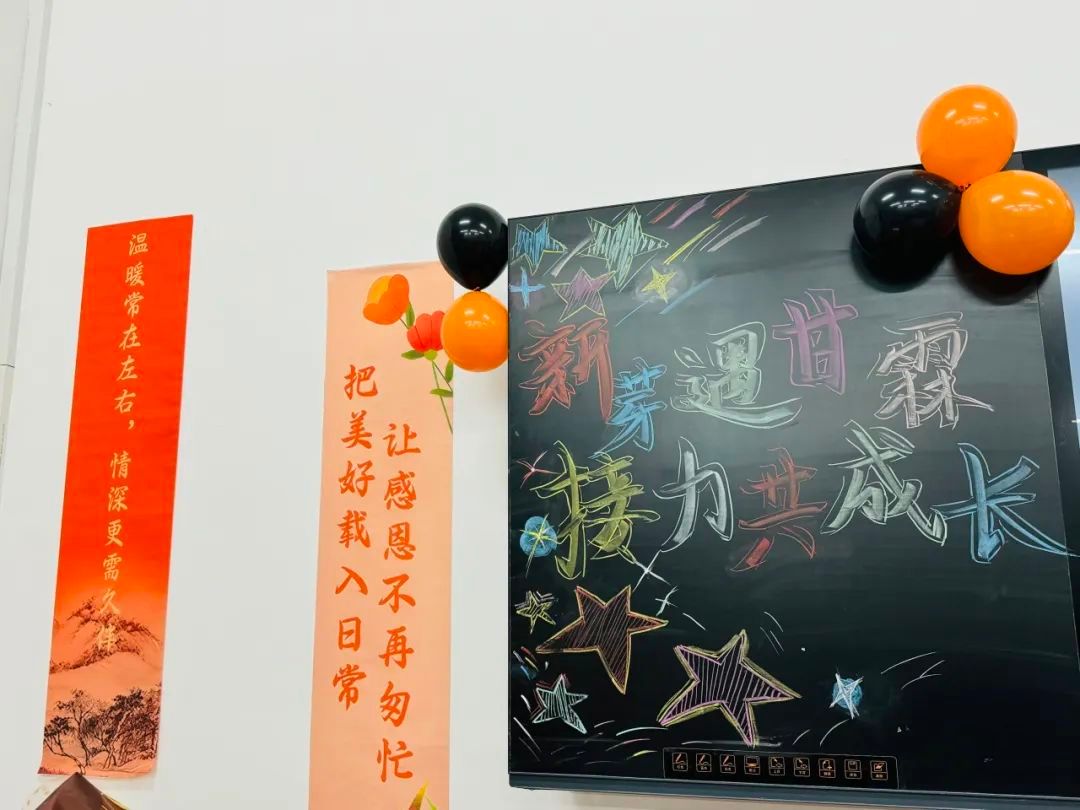 温暖常在左右，情深更需久伴
让感恩不再匆忙
把美好载入日常
新芽遇甘霖
接力共成长